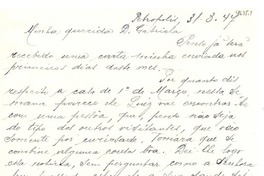 Petropolis, 31/3.47
Minha querida D. Gabriela
Penso já terá
recebido uma carta minha enviada nos
primeiros dias deste mez.
Por quanto diz
respeito a carta de 1º de Março, nesta se
mana parece de Luiz vae encontrar-se
com uma pessôa, que, pode não seja
do tipo dos outros visitantes, que vão
somente por curiosidade. Tomara que se
combine alguma cousa boa. Dei lhe logo
esta noticia, sem perguntar como a Senhora